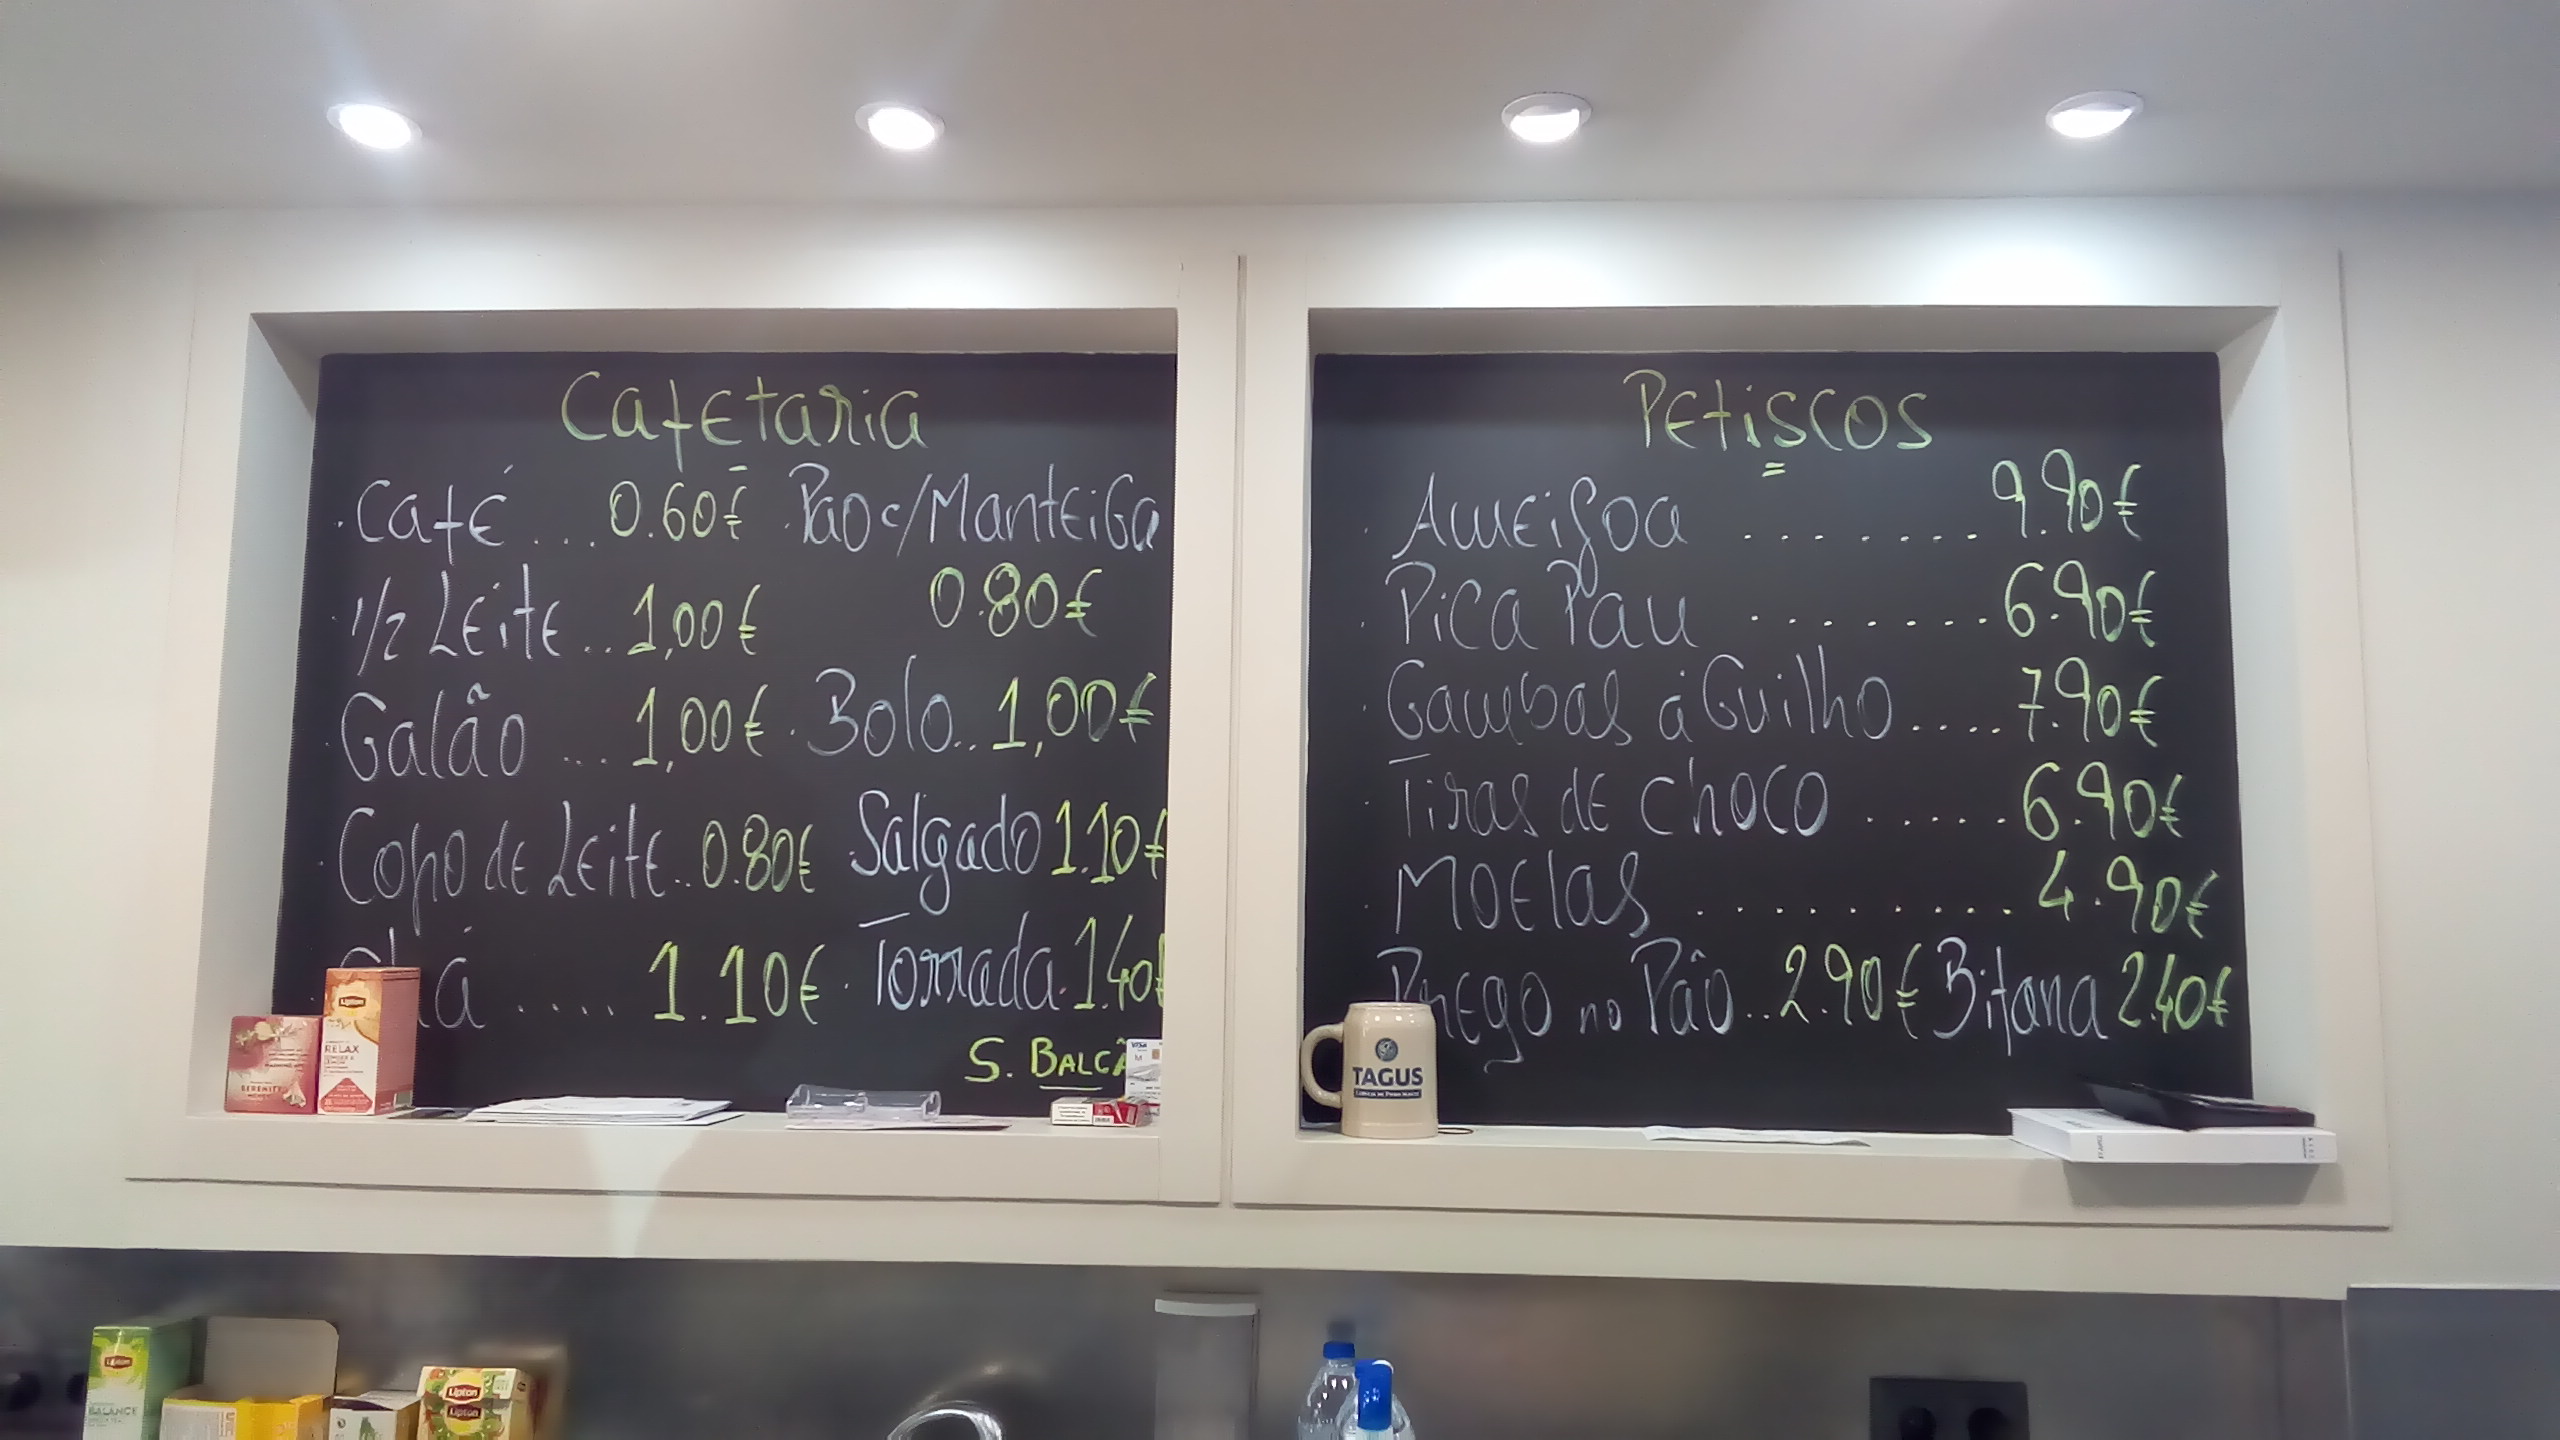 Cafetaria
. Café ... 0.60€
. 1/2 Leite .. 1,00€
. Galão ... 1,00€
. Copo de Leite .. 0.80€
Chá .... 1.10€
. Pão c/Manteiga
0.80€
. Bolo .. 1,00€
. Salgado 1.10€
. Torrada . 1.40€
S. BALCÃ
Petiscos
. Ameijoa ........ 9.90€
. Pica Pau ........ 6.90€
. Gambas á Guilho .... 7.90€
. Tiras de choco ..... 6.90€
. Moelas .......... 4.90€
Prego no Pão .. 2.90€ Bifana 2.40€
Lipton
RELAX
SERENITY
VISA
TAGUS
Lipton
BALANCE
Lipton
Lipton